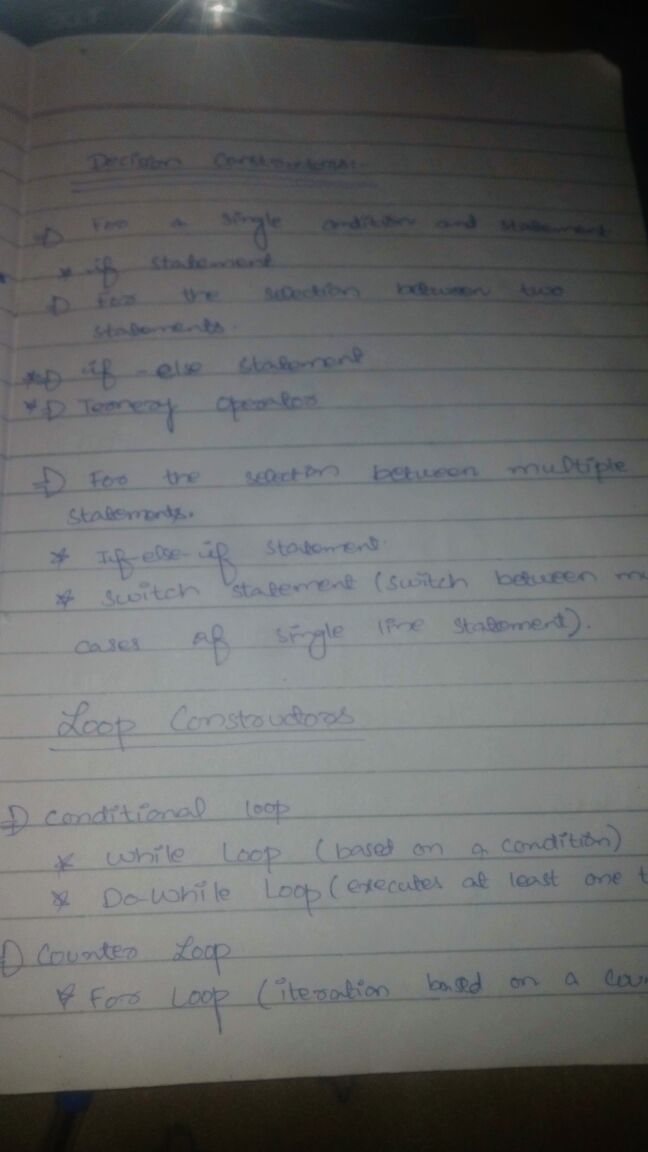 Decision Constructors:-
For a single condition and statement
* if statement
For the selection between two
statements.
* if-else statement
* Ternery operator
For the selection between multiple
statements.
* If-else-if statement
* switch statement (switch between
cases of single line statement).
Loop Constructors
Conditional loop
* while Loop (based on a condition)
* Do-while Loop (executes at least one
Counter Loop
* For Loop (iteration based on a